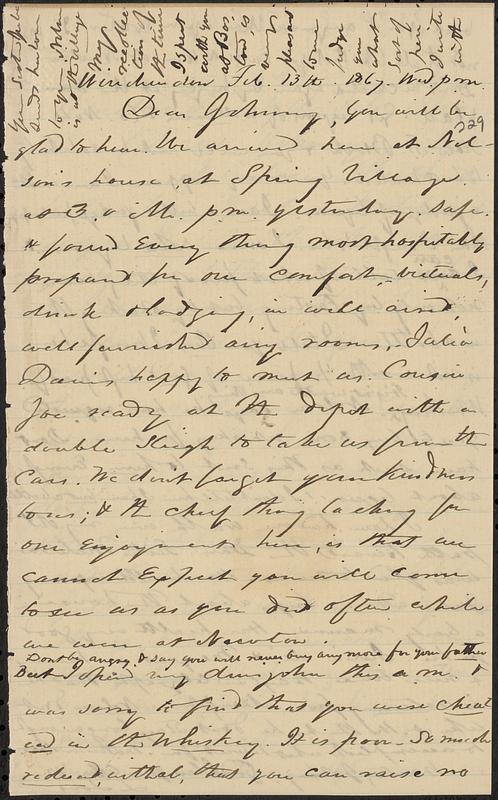 Winchendon Feb. 13th. 1867. Wed. p.m.
Dear Johnny, You will be
229
glad to hear. We arrived here at Nel-
son's house, at Spring Village
at 3. o clk. p.m. yesterday, safe.
& found every thing most hospitably
prepared for our comfort, victuals,
drink & lodging, in well aired
well furnished airy rooms, Julia
Davis happy to meet us. Cousin
Joe ready at the depot with a
double sleigh to take us from the
Cars. We dont forget your kindness
to us; & the chief thing lacking for
our enjoyment here, is that we
cannot expect you will come
to see us as you did often while
we were at Newton.
Dont be angry, & say you will never buy any more for your father
But I opened my demijohn this a.m. &
was sorry to find that you were cheat
ed in the Whiskey. It is poor - so much
reduced, withal, that you can raise no